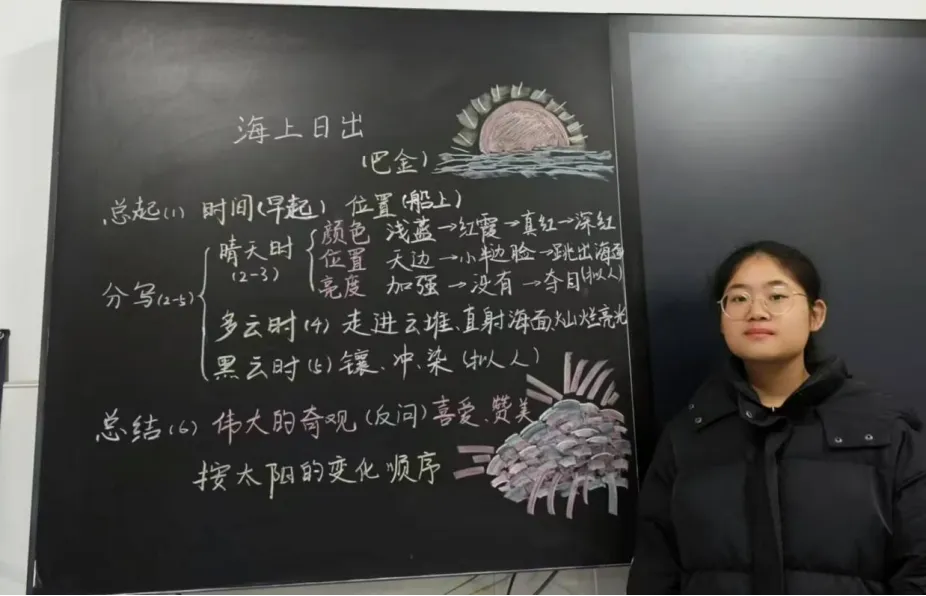 海上日出
(巴金)
总起(1) 时间(早起) 位置(船上)
分写(2-5)
晴天时
(2-3)
颜色 浅蓝→红霞→真红→深红
位置 天边→小半边脸→跳出海面
亮度 加强→没有→夺目(拟人)
多云时(4) 走进云堆、直射海面灿烂亮光
黑云时(5) 镶、冲、染(拟人)
总结(6) 伟大的奇观(反问)喜爱、赞美
按太阳的变化顺序